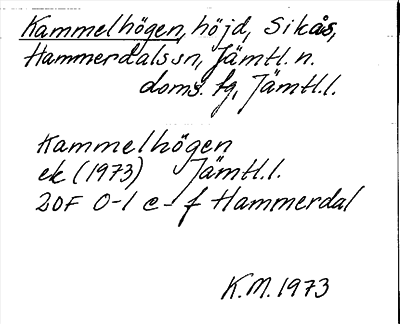 Kammelhögen, höjd, Sikås,
Hammerdals sn, Jämtl. n.
doms. fg, Jämtl. l.
Kammelhögen
ek (1973) Jämtl. l.
20F 0-1 e-f Hammerdal
K.M. 1973